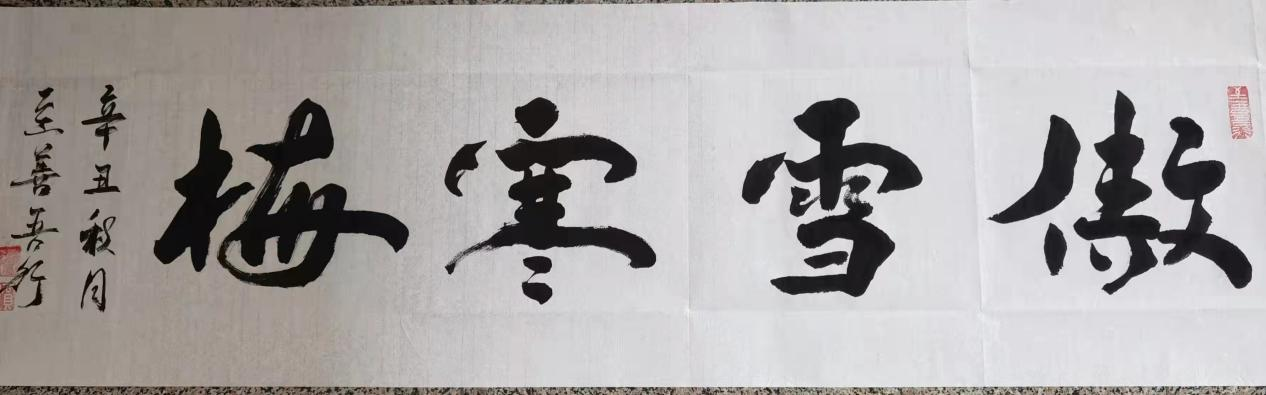 傲雪寒梅
辛丑秋月
至善吾行